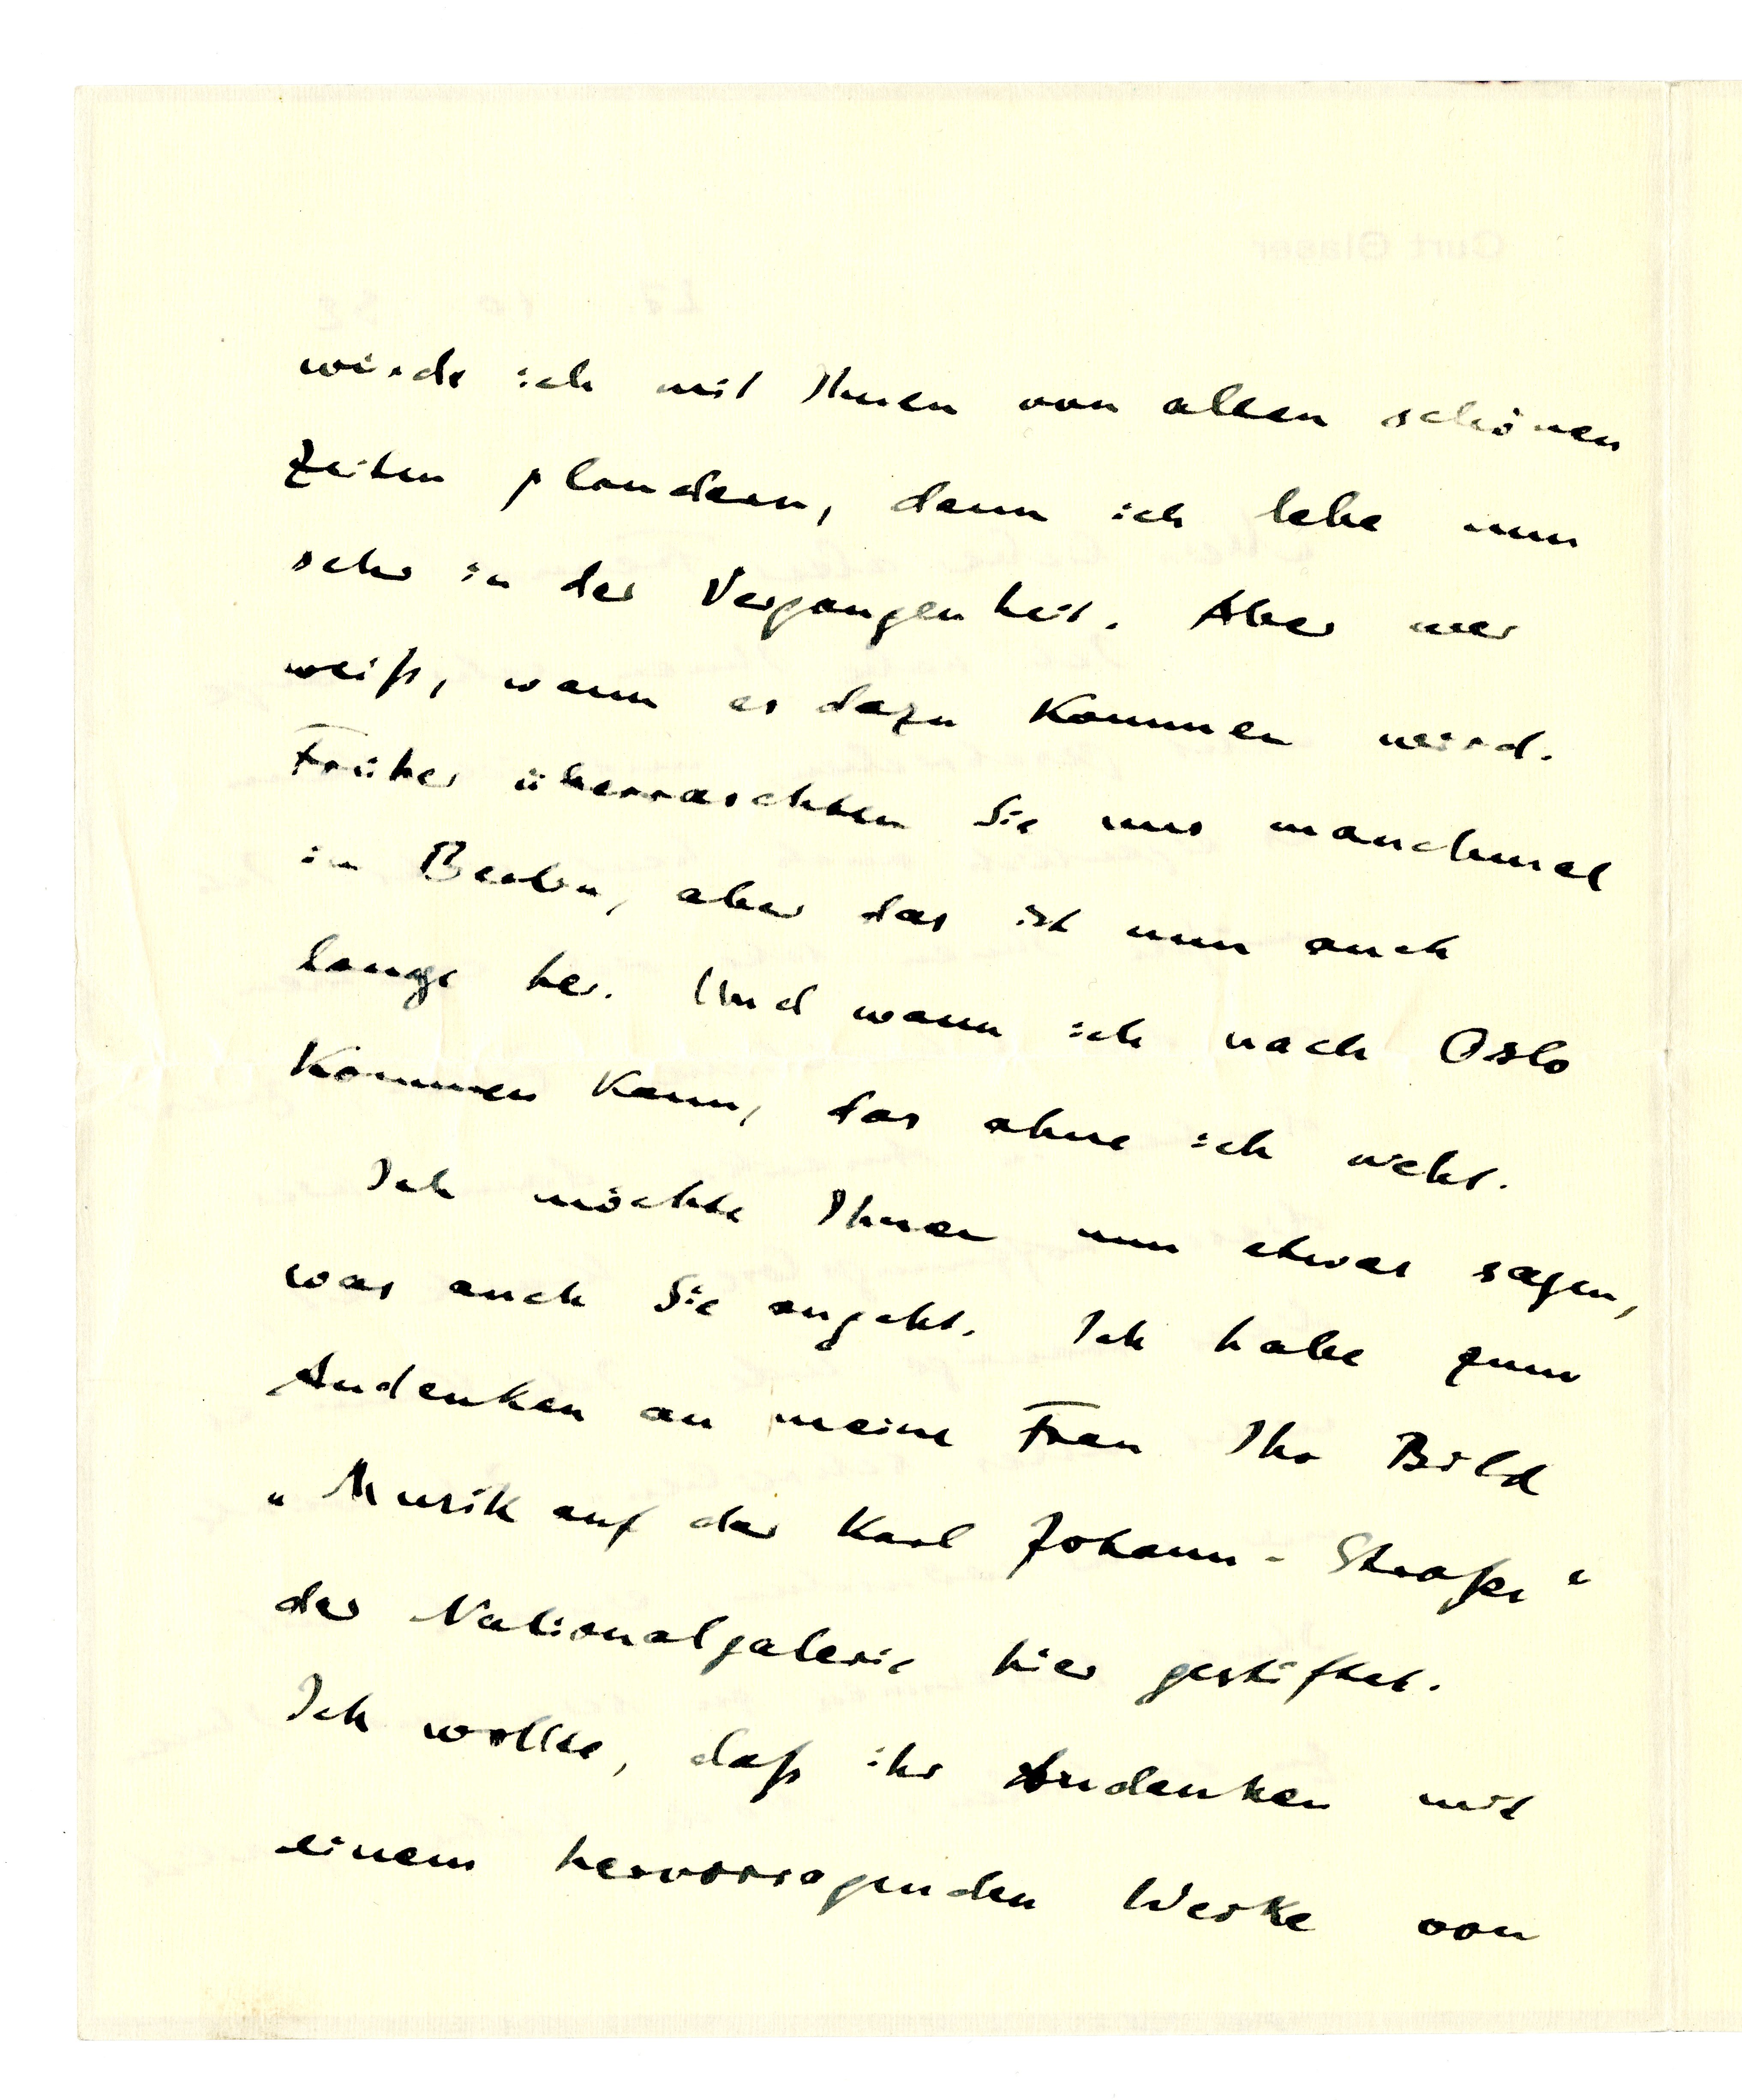 würde ich mit Ihnen von alten schönen
Zeiten plaudern, denn ich lebe nun
sehr in der Vergangenheit. Aber wer
weiß, wann es dazu kommen wird.
Früher überraschten Sie uns manchmal
in Berlin, aber das ist nun auch
lange her. Und wann ich nach Oslo
kommen kann, das ahne ich nicht.
Ich möchte Ihnen nun etwas sagen,
was auch Sie angeht. Ich habe zum
Andenken an meine Frau Ihr Bild
„Musik auf der Karl Johann-Straße“
der Nationalgalerie hier gestiftet.
Ich wollte, daß ihr Andenken mit
einem hervorragenden Werke von